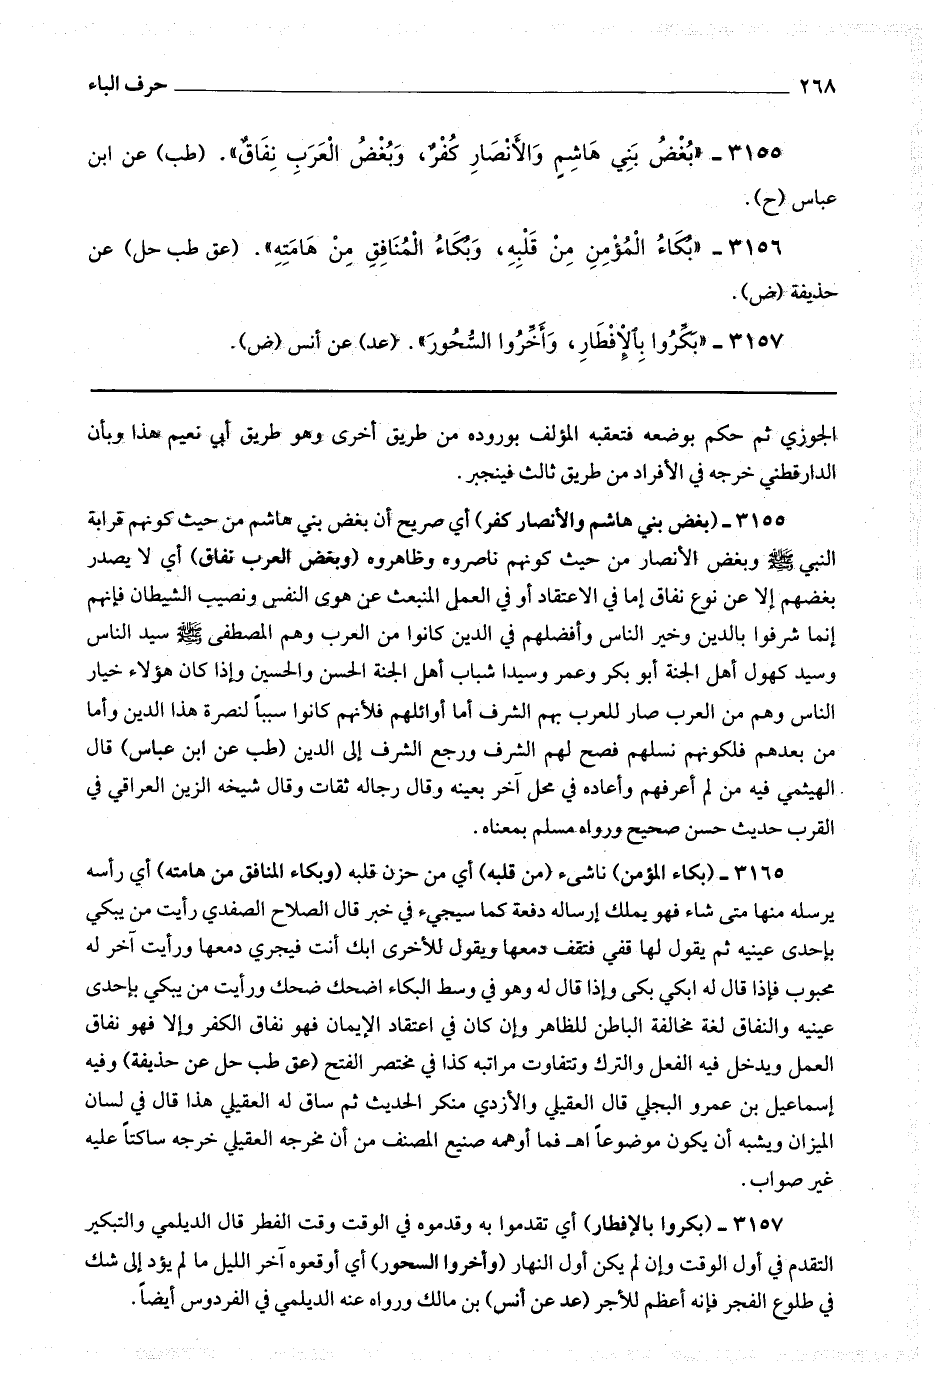 ٢٦٨ حرف الباء
٣١٥٥ ـ «بُغْضُ بَنِي هَاشِمٍ وَالأَنْصَارِ كُفْرٌ، وَبُغْضُ الْعَرَبِ نِفَاقٌ». (طب) عن ابن
عباس (ح).
٣١٥٦ ـ «بُكَاءُ الْمُؤْمِنِ مِنْ قَلْبِهِ، وَبُكَاءُ الْمُنَافِقِ مِنْ هَامَتِهِ». (عق طب حل) عن
حذيفة (ض).
٣١٥٧ ـ «بَكِّرُوا بِالْإِفْطَارِ، وَأَخِّرُوا السُّحُورَ». (عد) عن أنس (ض).
الجوزي ثم حكم بوضعه فتعقبه المؤلف بوروده من طريق أخرى وهو طريق أبي نعيم هذا وبأن
الدارقطني خرجه في الأفراد من طريق ثالث فينجبر.
٣١٥٥ ـ (بغض بني هاشم والأنصار كفر) أي صريح أن بغض بني هاشم من حيث كونهم قرابة
النبي ﷺ وبغض الأنصار من حيث كونهم ناصروه وظاهروه (وبغض العرب نفاق) أي لا يصدر
بغضهم إلا عن نوع نفاق إما في الاعتقاد أو في العمل المنبعث عن هوى النفس ونصيب الشيطان فإنهم
إنما شرفوا بالدين وخير الناس وأفضلهم في الدين كانوا من العرب وهم المصطفى ﷺ سيد الناس
وسيد كهول أهل الجنة أبو بكر وعمر وسيدا شباب أهل الجنة الحسن والحسين وإذا كان هؤلاء خيار
الناس وهم من العرب صار للعرب بهم الشرف أما أوائلهم فلأنهم كانوا سبباً لنصرة هذا الدين وأما
من بعدهم فلكونهم نسلهم فصح لهم الشرف ورجع الشرف إلى الدين (طب عن ابن عباس) قال
الهيثمي فيه من لم أعرفهم وأعاده في محل آخر بعينه وقال رجاله ثقات وقال شيخه الزين العراقي في
القرب حديث حسن صحيح ورواه مسلم بمعناه.
٣١٦٥ ـ (بكاء المؤمن) ناشىء (من قلبه) أي من حزن قلبه (وبكاء المنافق من هامته) أي رأسه
يرسله منها متى شاء فهو يملك إرساله دفعة كما سيجيء في خبر قال الصلاح الصفدي رأيت من يبكي
بإحدى عينيه ثم يقول لها قفي فتقف دمعها ويقول للأخرى ابك أنت فيجري دمعها ورأيت آخر له
محبوب فإذا قال له ابكي بكى وإذا قال له وهو في وسط البكاء اضحك ضحك ورأيت من يبكي بإحدى
عينيه والنفاق لغة مخالفة الباطن للظاهر وإن كان في اعتقاد الإيمان فهو نفاق الكفر وإلا فهو نفاق
العمل ويدخل فيه الفعل والترك وتتفاوت مراتبه كذا في مختصر الفتح (عق طب حل عن حذيفة) وفيه
إسماعيل بن عمرو البجلي قال العقيلي والأزدي منكر الحديث ثم ساق له العقيلي هذا قال في لسان
الميزان ويشبه أن يكون موضوعاً اهـ فما أوهمه صنيع المصنف من أن مخرجه العقيلي خرجه ساكتاً عليه
غير صواب.
٣١٥٧ ـ (بكروا بالإفطار) أي تقدموا به وقدموه في الوقت وقت الفطر قال الديلمي والتبكير
التقدم في أول الوقت وإن لم يكن أول النهار (وأخروا السحور) أي أوقعوه آخر الليل ما لم يؤد إلى شك
في طلوع الفجر فإنه أعظم للأجر (عد عن أنس) بن مالك ورواه عنه الديلمي في الفردوس أيضاً.